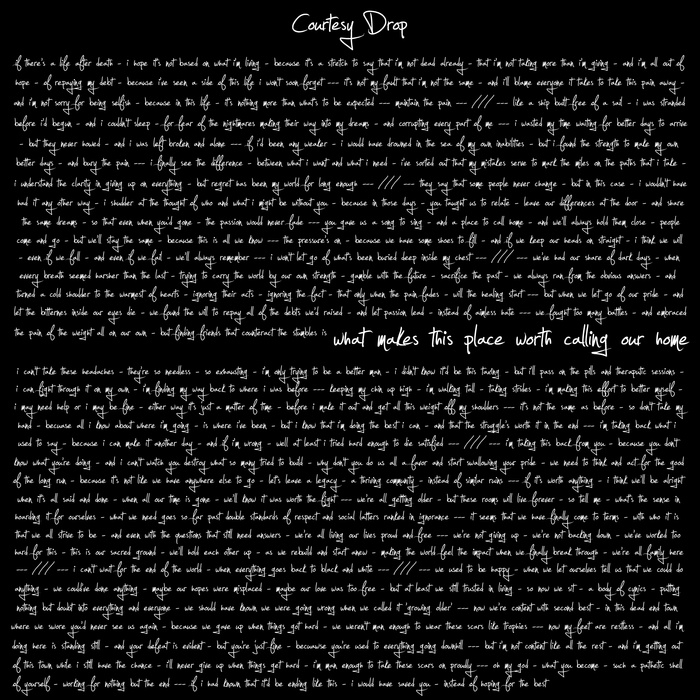 Courtesy Drop
if there's a life after death - i hope it's not based on what i'm living - because it's a stretch to say that i'm not dead already - that i'm not taking more than i'm giving - and i'm all out of
hope - of repaying my debt - because i've seen a side of this life i won't soon forget --- it's not my fault that i'm not the same - and i'll blame everyone it takes to take this pain away -
and i'm not sorry for being selfish - because in this life - it's nothing more than what's to be expected --- maintain the pain --- /// --- like a ship built free of a sail - i was stranded
before i'd begun - and i couldn't sleep - for fear of the nightmares making their way into my dreams - and corrupting every part of me --- i wasted my time waiting for better days to arrive
- but they never showed - and i was left broken and alone --- if i'd been any weaker - i would have drowned in the sea of my own inabilities - but i found the strength to make my own
better days - and bury the pain --- i finally see the difference - between what i want and what i need - i've sorted out that my mistakes serve to mark the miles on the paths that i take -
i understand the clarity in giving up on everything - but regret has been my world for long enough --- /// --- they say that some people never change - but in this case - i wouldn't have
had it any other way - i shudder at the thought of who and what i might be without you - because in those days - you taught us to relate - leave our differences at the door - and share
the same dreams - so that even when you'd gone - the passion would never fade --- you gave us a song to sing - and a place to call home - and we'll always hold them close - people
come and go - but we'll stay the same - because this is all we know --- the pressure's on - because we have some shoes to fill - and if we keep our heads on straight - i think we will
- even if we fall - and even if we fail - we'll always remember --- i won't let go of what's been buried deep inside my chest --- /// --- we've had our share of dark days - when
every breath seemed harsher than the last - trying to carry the world by our own strength - gamble with the future - sacrifice the past - we always ran from the obvious answers - and
turned a cold shoulder to the warmest of hearts - ignoring their acts - ignoring the fact - that only when the pain fades - will the healing start --- but when we let go of our pride - and
let the bitterness inside our eyes die - we found the will to repay all of the debts we'd raised - and let passion lead - instead of aimless hate --- we fought too many battles - and embraced
the pain of the weight all on our own - but finding friends that counteract the stumbles is what makes this place worth calling our home
i can't take these headaches - they're so needless - so exhausting - i'm only trying to be a better man - i didn't know it'd be this taxing - but i'll pass on the pills and theraputic sessions -
i can fight through it on my own - i'm finding my way back to where i was before --- keeping my chin up high - i'm walking tall - taking strides - i'm making this effort to better myself -
i may need help or i may be fine - either way it's just a matter of time - before i make it out and get all this weight off my shoulders --- it's not the same as before - so don't take my
hand - because all i know about where i'm going - is where i've been - but i know that i'm doing the best i can - and that the struggle's worth it in the end --- i'm taking back what i
used to say - because i can make it another day - and if i'm wrong - well at least i tried hard enough to die satisfied --- /// --- i'm taking this back from you - because you don't
know what you're doing - and i can't watch you destroy what so many tried to build - why don't you do us all a favor and start swallowing your pride - we need to think and act for the good
of the long run - because it's not like we have anywhere else to go - let's leave a legacy - a thriving community - instead of similar ruins --- if it's worth anything - i think we'll be alright
when it's all said and done - when all our time is gone - we'll know it was worth the fight --- we're all getting older - but these rooms will live forever - so tell me - what's the sense in
hoarding it for ourselves - what we need goes so far past double standards of respect and social latters ranked in ignorance --- it seems that we have finally come to terms - with who it is
that we all strive to be - and even with the question that still need answers - we're all living our lives proud and free --- we're not giving up - we're not backing down - we've worked too
hard for this - this is our sacred ground - we'll hold each other up - as we rebuild and start anew - making the world feel the impact when we finally break through - we're all family here
--- /// --- i can't wait for the end of the world - when everything goes back to black and white --- /// --- we used to be happy - when we let ourselves tell us that we could do
anything - we could've done anything - maybe our hopes were misplaced - maybe our love was too free - but at least we still trusted in living - so now we sit - a body of cynics - putting
nothing but doubt into everything and everyone - we should have known we were going wrong when we called it 'growing older' --- now we're content with second best - in this dead end town
where we swore you'd never see us again - because we gave up when things got hard - we weren't man enough to wear these scars like trophies --- now my feet are restless - and all i'm
doing here is standing still - and your defeat is evident - but you're just fine - because you're used to everything going downhill --- but i'm not content like all the rest - and i'm getting out
of this town while i still have the chance - i'll never give up when things get hard - i'm man enough to take these scars on proudly --- oh my god - what you become - such a pathetic shell
of yourself - working for nothing but the end --- if i had known that it'd be ending like this - i would have saved you - instead of hoping for the best